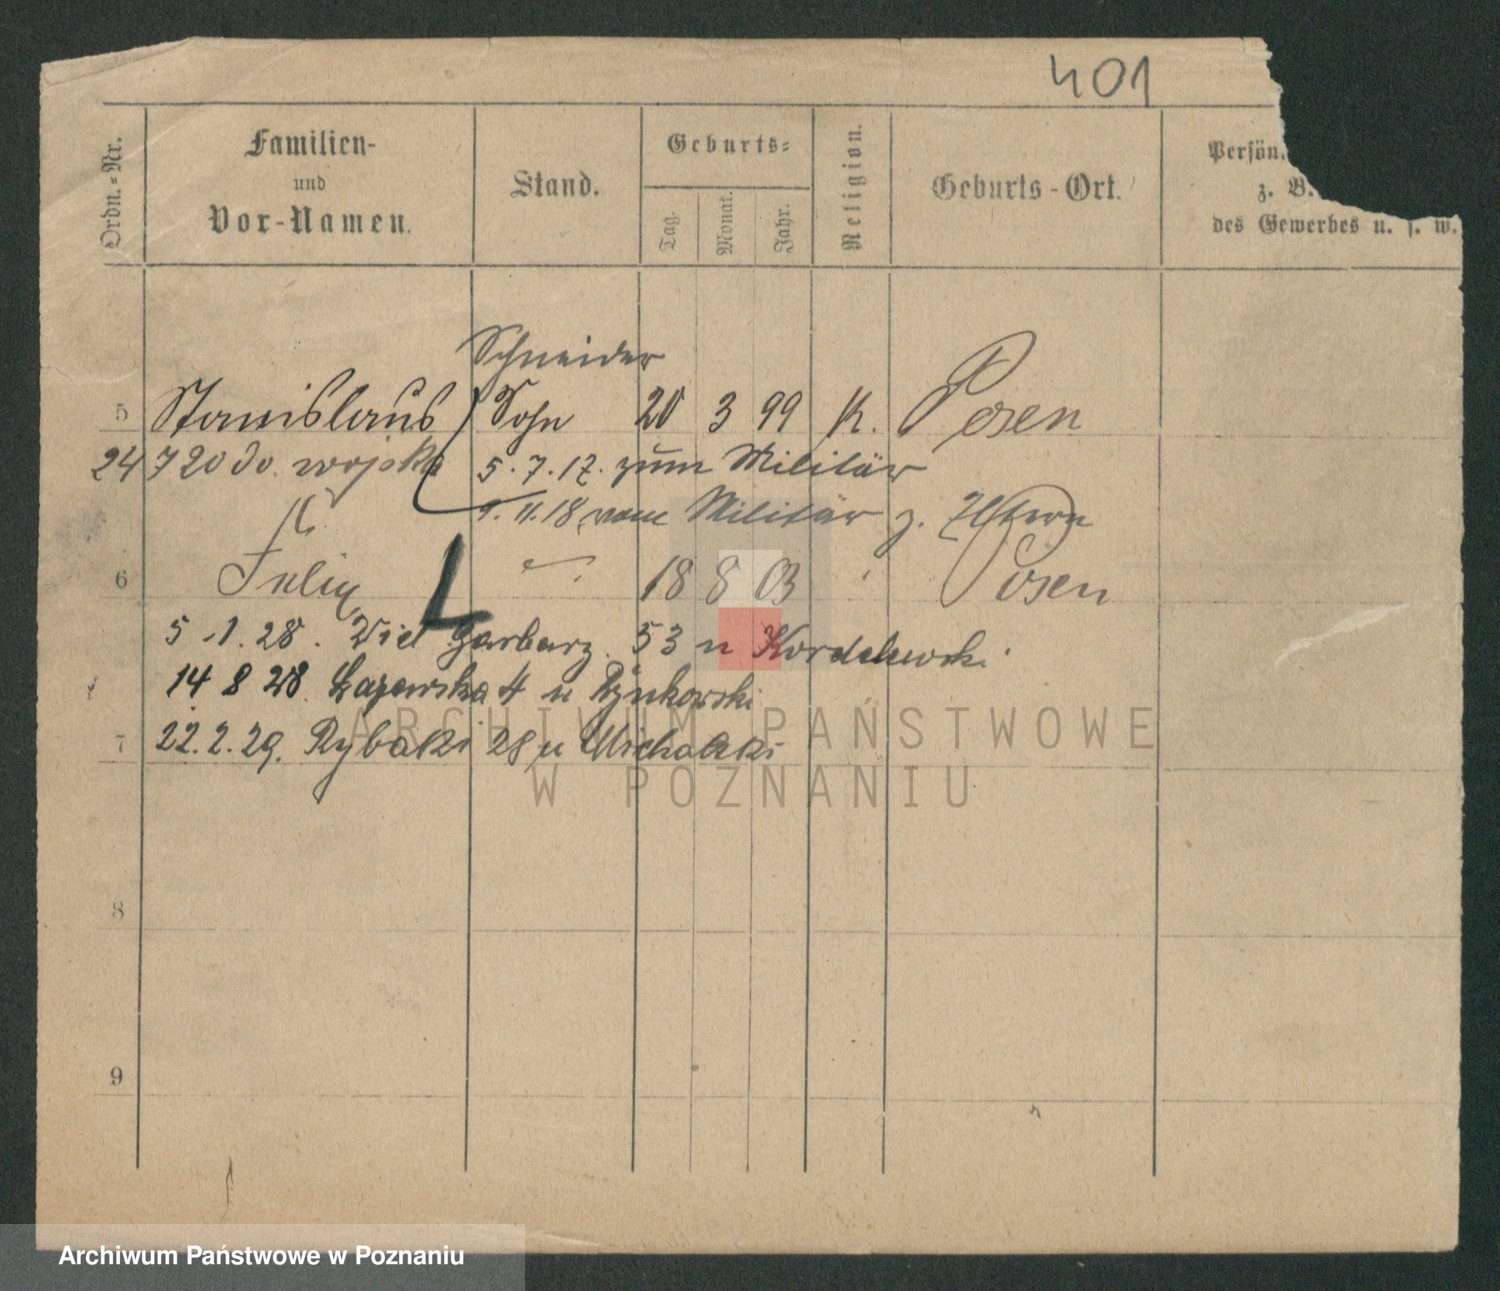 401
Ordn.-Nr.
Familien-
und
Vor-Namen.
Stand.
Geburts-
Tag.
Monat.
Jahr.
Religion.
Geburts-Ort.
Persön
z. B.
des Gewerbes u. s. w.
Schneider
5 Stanislaus Sohn 20 3 99 K. Posen
24 7 20 do wojska 5.7.17. zum Militär
9.11.18 vom Militär z. Eltern
6 Felix 18 8 03 Posen
5.1.28. Wiel Garbary 53 u Kordelewski
14 8 28. Łazarska 4 u Rynkowski
7 22.2.29. Rybaki 28 u Michalski
8
9
ARCHIWUM PAŃSTWOWE
W POZNANIU
Archiwum Państwowe w Poznaniu